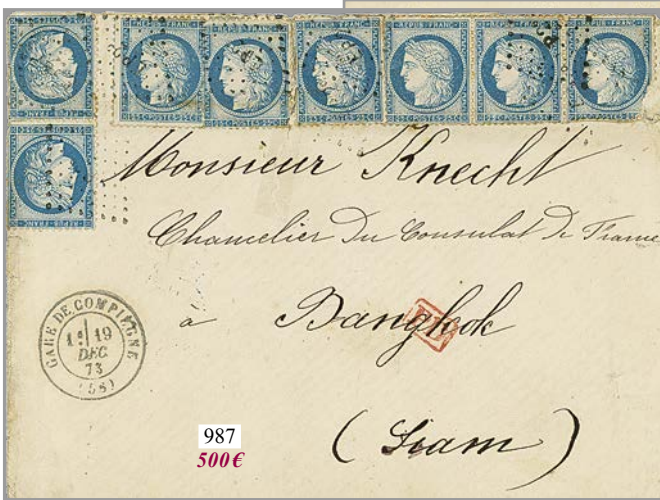 REPUB. FRANC.
POSTES
Monsieur Knecht
Chancelier Du Consulat De France
à Bangkok
(Siam)
GARE DE COMPIEGNE
1e 19
DEC.
73
(58)
PD
987
500€